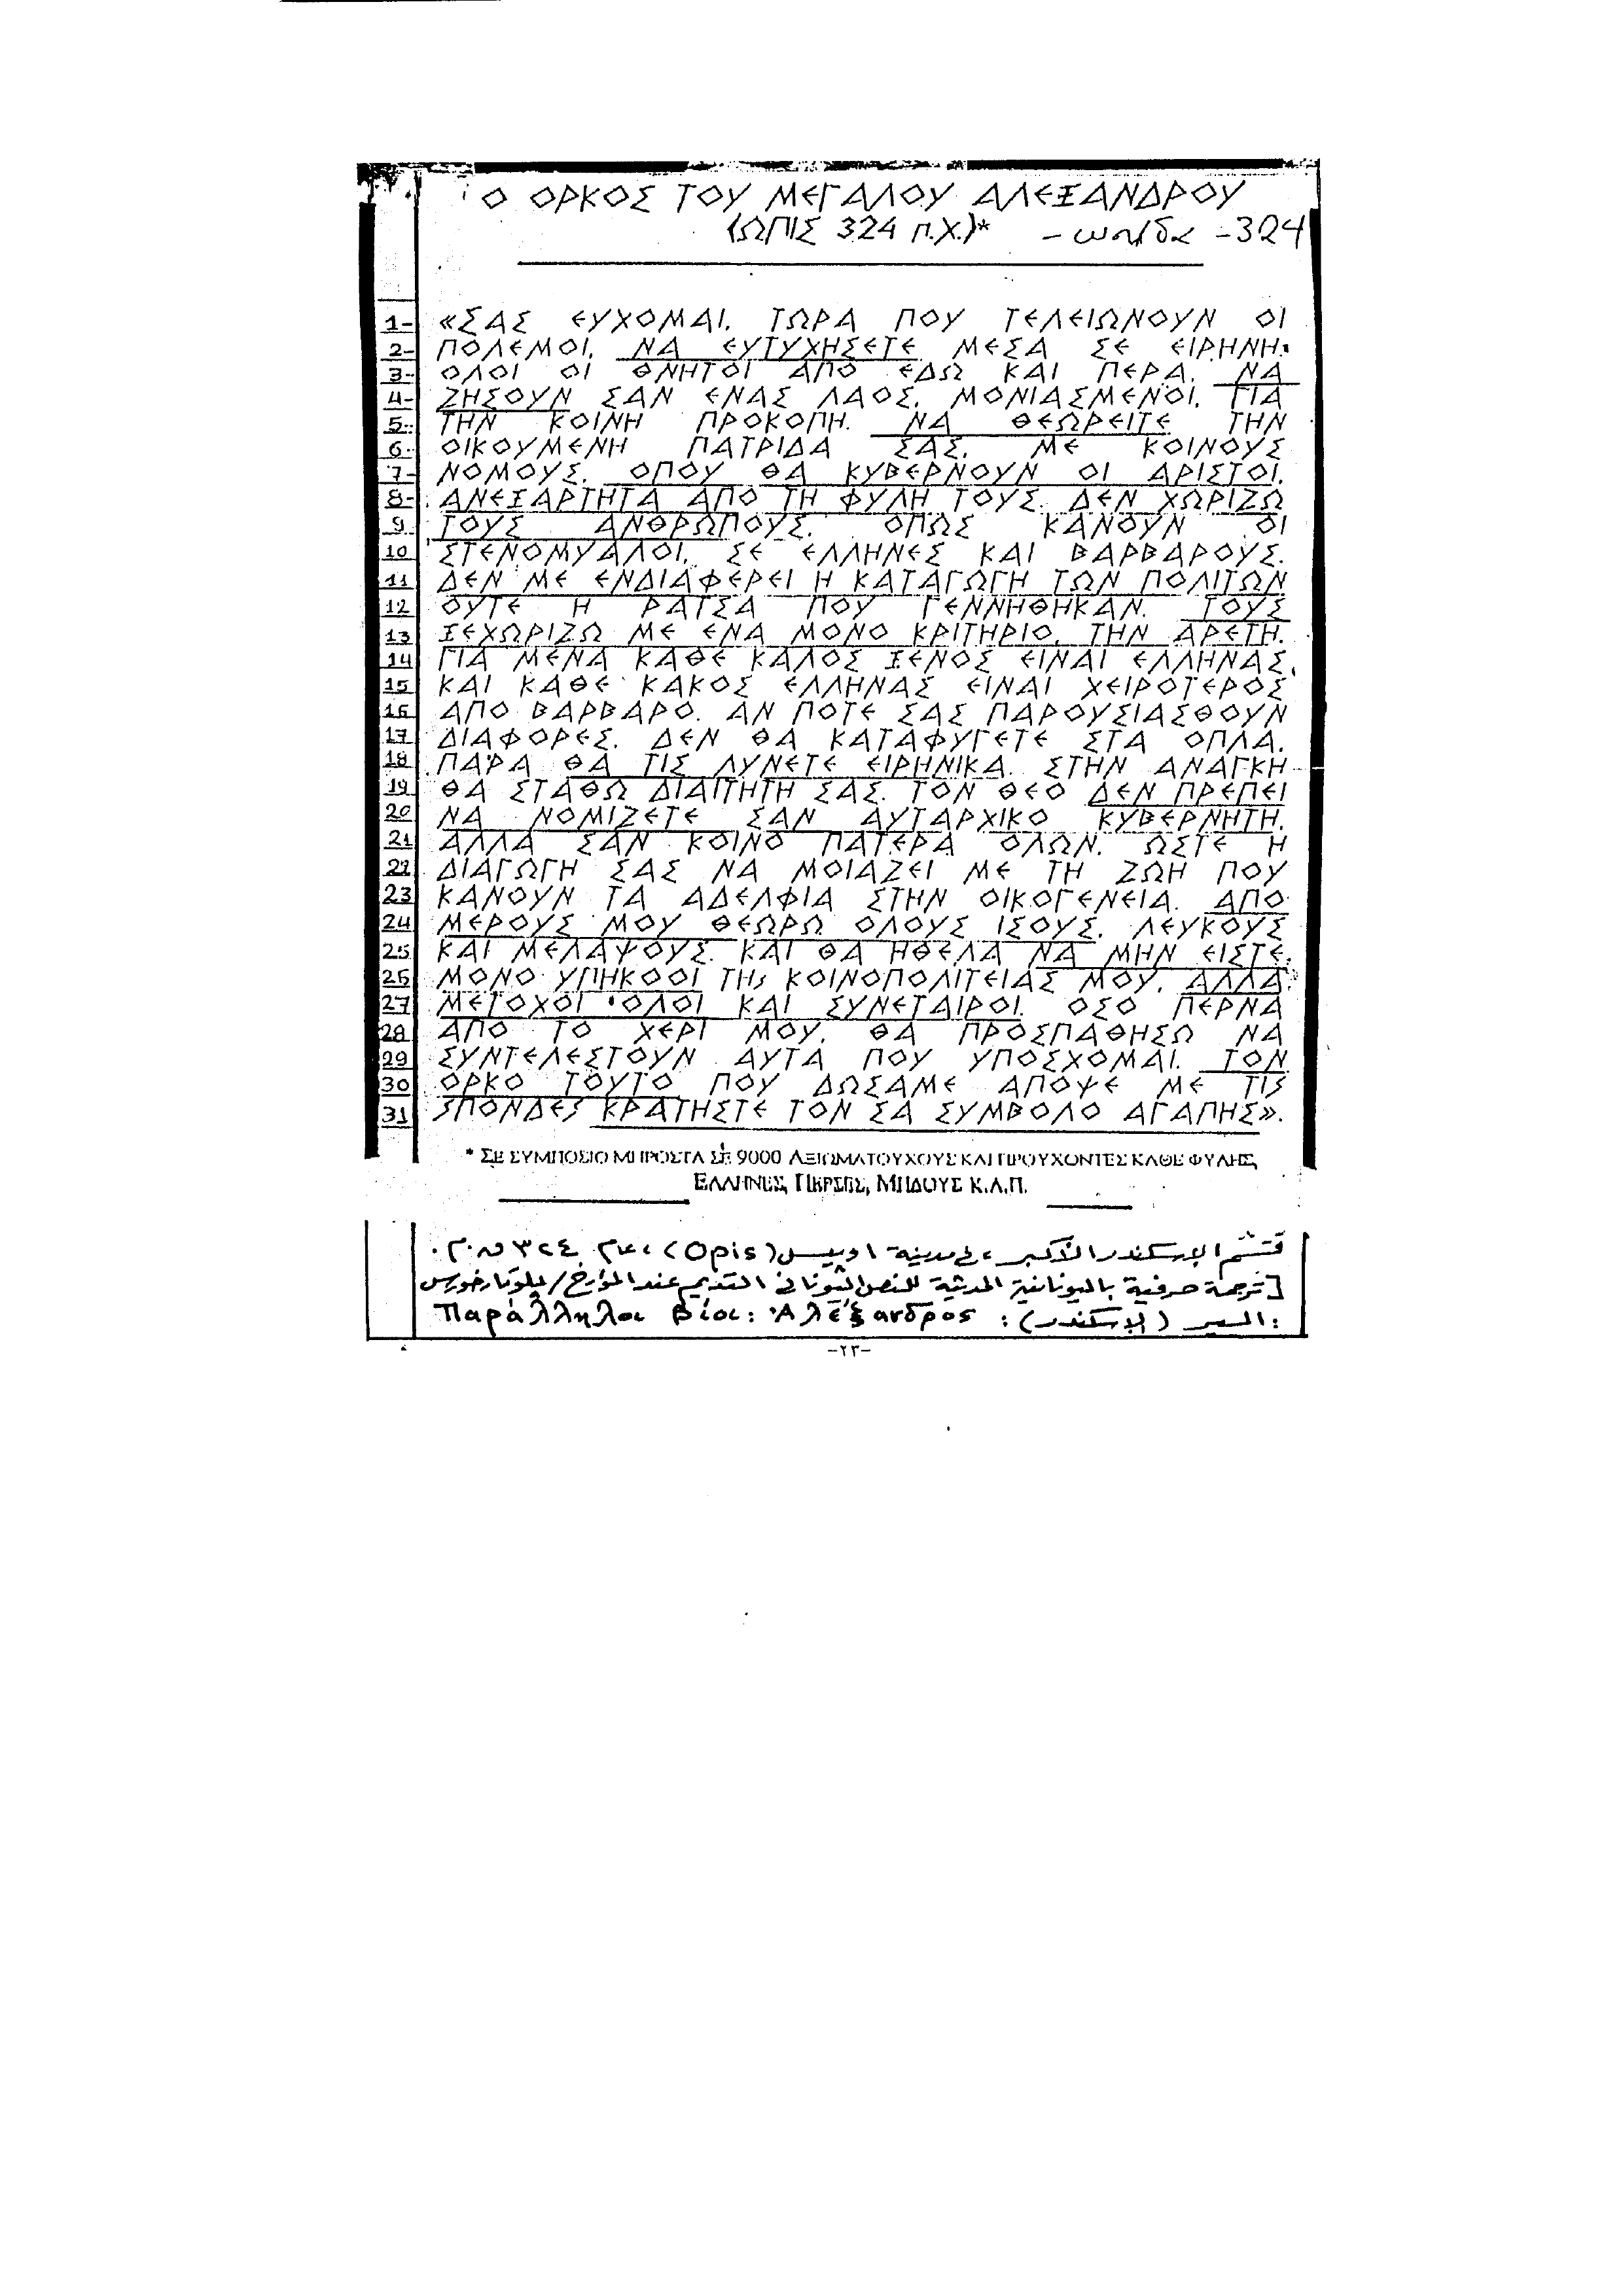 Ο ΟΡΚΟΣ ΤΟΥ ΜΕΓΑΛΟΥ ΑΛΕΞΑΝΔΡΟΥ
(ΩΠΙΣ 324 π.Χ.)* – ωπίδα – 324
1- «ΣΑΣ ΕΥΧΟΜΑΙ, ΤΩΡΑ ΠΟΥ ΤΕΛΕΙΩΝΟΥΝ ΟΙ
2- ΠΟΛΕΜΟΙ, ΝΑ ΕΥΤΥΧΗΣΕΤΕ ΜΕΣΑ ΣΕ ΕΙΡΗΝΗ.
3- ΟΛΟΙ ΟΙ ΘΝΗΤΟΙ ΑΠΟ ΕΔΩ ΚΑΙ ΠΕΡΑ, ΝΑ
4- ΖΗΣΟΥΝ ΣΑΝ ΕΝΑΣ ΛΑΟΣ, ΜΟΝΙΑΣΜΕΝΟΙ, ΓΙΑ
5- ΤΗΝ ΚΟΙΝΗ ΠΡΟΚΟΠΗ. ΝΑ ΘΕΩΡΕΙΤΕ ΤΗΝ
6- ΟΙΚΟΥΜΕΝΗ ΠΑΤΡΙΔΑ ΣΑΣ, ΜΕ ΚΟΙΝΟΥΣ
7- ΝΟΜΟΥΣ, ΟΠΟΥ ΘΑ ΚΥΒΕΡΝΟΥΝ ΟΙ ΑΡΙΣΤΟΙ,
8- ΑΝΕΞΑΡΤΗΤΑ ΑΠΟ ΤΗ ΦΥΛΗ ΤΟΥΣ. ΔΕΝ ΧΩΡΙΖΩ
9 ΤΟΥΣ ΑΝΘΡΩΠΟΥΣ, ΟΠΩΣ ΚΑΝΟΥΝ ΟΙ
10 ΣΤΕΝΟΜΥΑΛΟΙ, ΣΕ ΕΛΛΗΝΕΣ ΚΑΙ ΒΑΡΒΑΡΟΥΣ.
11 ΔΕΝ ΜΕ ΕΝΔΙΑΦΕΡΕΙ Η ΚΑΤΑΓΩΓΗ ΤΩΝ ΠΟΛΙΤΩΝ
12 ΟΥΤΕ Η ΡΑΤΣΑ ΠΟΥ ΓΕΝΝΗΘΗΚΑΝ. ΤΟΥΣ
13 ΞΕΧΩΡΙΖΩ ΜΕ ΕΝΑ ΜΟΝΟ ΚΡΙΤΗΡΙΟ, ΤΗΝ ΑΡΕΤΗ.
14 ΓΙΑ ΜΕΝΑ ΚΑΘΕ ΚΑΛΟΣ ΞΕΝΟΣ ΕΙΝΑΙ ΕΛΛΗΝΑΣ,
15 ΚΑΙ ΚΑΘΕ ΚΑΚΟΣ ΕΛΛΗΝΑΣ ΕΙΝΑΙ ΧΕΙΡΟΤΕΡΟΣ
16 ΑΠΟ ΒΑΡΒΑΡΟ. ΑΝ ΠΟΤΕ ΣΑΣ ΠΑΡΟΥΣΙΑΣΘΟΥΝ
17 ΔΙΑΦΟΡΕΣ, ΔΕΝ ΘΑ ΚΑΤΑΦΥΓΕΤΕ ΣΤΑ ΟΠΛΑ,
18 ΠΑΡΑ ΘΑ ΤΙΣ ΛΥΝΕΤΕ ΕΙΡΗΝΙΚΑ. ΣΤΗΝ ΑΝΑΓΚΗ
19 ΘΑ ΣΤΑΘΩ ΔΙΑΙΤΗΤΗ ΣΑΣ. ΤΟΝ ΘΕΟ ΔΕΝ ΠΡΕΠΕΙ
20 ΝΑ ΝΟΜΙΖΕΤΕ ΣΑΝ ΑΥΤΑΡΧΙΚΟ ΚΥΒΕΡΝΗΤΗ,
21 ΑΛΛΑ ΣΑΝ ΚΟΙΝΟ ΠΑΤΕΡΑ ΟΛΩΝ. ΩΣΤΕ Η
22 ΔΙΑΓΩΓΗ ΣΑΣ ΝΑ ΜΟΙΑΖΕΙ ΜΕ ΤΗ ΖΩΗ ΠΟΥ
23 ΚΑΝΟΥΝ ΤΑ ΑΔΕΛΦΙΑ ΣΤΗΝ ΟΙΚΟΓΕΝΕΙΑ. ΑΠΟ
24 ΜΕΡΟΥΣ ΜΟΥ ΘΕΩΡΩ ΟΛΟΥΣ ΙΣΟΥΣ, ΛΕΥΚΟΥΣ
25 ΚΑΙ ΜΕΛΑΨΟΥΣ. ΚΑΙ ΘΑ ΗΘΕΛΑ ΝΑ ΜΗΝ ΕΙΣΤΕ
26 ΜΟΝΟ ΥΠΗΚΟΟΙ ΤΗς ΚΟΙΝΟΠΟΛΙΤΕΙΑΣ ΜΟΥ, ΑΛΛΑ
27 ΜΕΤΟΧΟΙ ΟΛΟΙ ΚΑΙ ΣΥΝΕΤΑΙΡΟΙ. ΟΣΟ ΠΕΡΝΑ
28 ΑΠΟ ΤΟ ΧΕΡΙ ΜΟΥ, ΘΑ ΠΡΟΣΠΑΘΗΣΩ ΝΑ
29 ΣΥΝΤΕΛΕΣΤΟΥΝ ΑΥΤΑ ΠΟΥ ΥΠΟΣΧΟΜΑΙ. ΤΟΝ
30 ΟΡΚΟ ΤΟΥΤΟ ΠΟΥ ΔΩΣΑΜΕ ΑΠΟΨΕ ΜΕ ΤΙΣ
31 SΠΟΝΔΕS ΚΡΑΤΗΣΤΕ ΤΟΝ ΣΑ ΣΥΜΒΟΛΟ ΑΓΑΠΗΣ».
* ΣΕ ΣΥΜΠΟΣΙΟ ΜΠΡΟΣΤΑ ΣΕ 9000 ΑΞΙΩΜΑΤΟΥΧΟΥΣ ΚΑΙ ΠΡΟΥΧΟΝΤΕΣ ΚΑΘΕ ΦΥΛΗΣ,
ΕΛΛΗΝΕΣ, ΠΕΡΣΕΣ, ΜΗΔΟΥΣ Κ.Λ.Π.
قسَم الإسكندر الأكبر، في مدينة أوبيس (Opis)، عام ٣٢٤ ق.م.
[ترجمة حرفية باليونانية الحديثة للنص اليوناني القديم عند المؤرخ/بلوتارخوس
:السير (الإسكندر) : Παράλληλοι Βίοι: Ἀλέξανδρος
-٢٣-